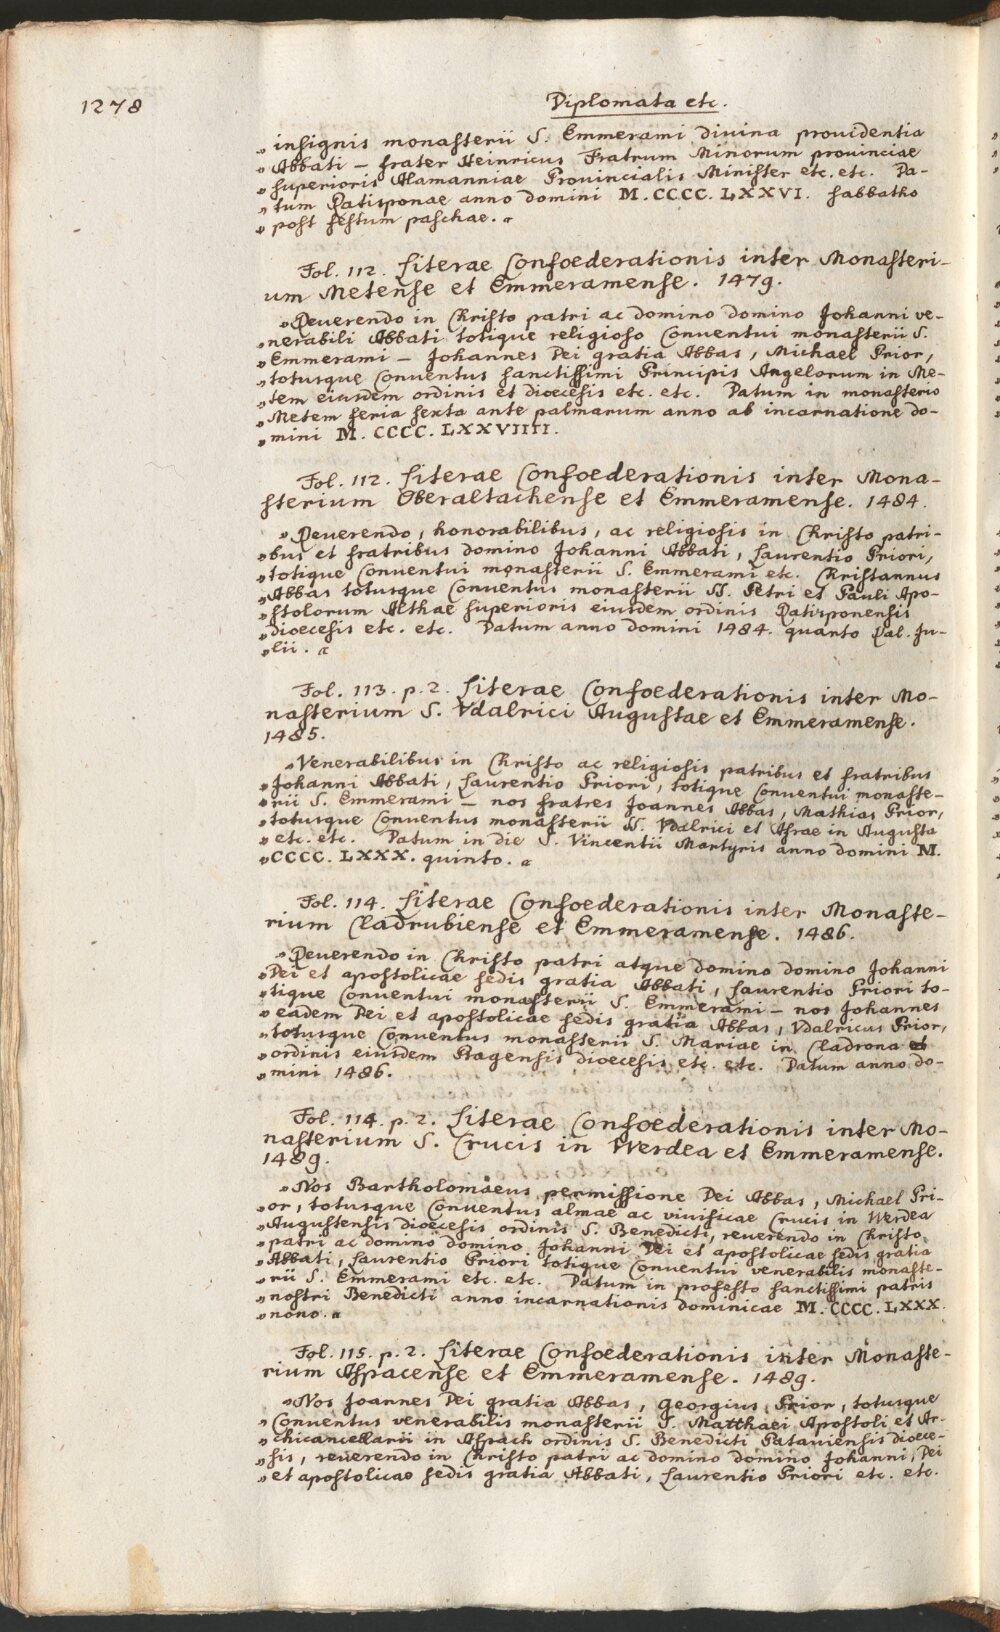 1278
Diplomata etc.
„ insignis monasterii S. Emmerami divina providentia
„ Abbati – frater Heinricus Fratrum Minorum provinciae
„ superioris Alamanniae Provincialis Minister etc. etc. Da-
„ tum Ratisponae anno domini M. CCCC. LXXVI. sabbatho
„ post festum paschae. “
Fol. 112. Literae Confoederationis inter Monasteri-
um Metense et Emmeramense. 1479.
„ Reuerendo in Christo patri ac domino domino Johanni ve-
„ nerabili Abbati totique religioso Conventui monasterii S.
„ Emmerami – Johannes Dei gratia Abbas, Michael Prior,
„ totusque Conventus sanctissimi Principis Angelorum in Me-
„ tem eiusdem ordinis et dioecesis etc. etc. Datum in monasterio
„ Metem feria sexta ante palmarum anno ab incarnatione do-
„ mini M. CCCC. LXXVIIII.
Fol. 112. Literae Confoederationis inter Mona-
sterium Oberaltachense et Emmeramense. 1484.
„ Reuerendo, honorabilibus, ac religiosis in Christo patri-
„ bus et fratribus domino Johanni Abbati, Laurentio Priori,
„ totique Conventui monasterii S. Emmerami etc. Christannus
„ Abbas totusque Conventus monasterii SS. Petri et Pauli Apo-
„ stolorum Althae superioris eiusdem ordinis Ratisponensis
„ dioecesis etc. etc. Datum anno domini 1484. quanto Kal. Ju-
„ lii. “
Fol. 113. p. 2. Literae Confoederationis inter Mo-
nasterium S. Vdalrici Augustae et Emmeramense.
1485.
„ Venerabilibus in Christo ac religiosis patribus et fratribus
„ Johanni Abbati, Laurentio Priori, totique Conventui monaste-
„ rii S. Emmerami – nos fratres Joannes Abbas, Mathias Prior,
„ totusque Conventus monasterii SS. Vdalrici et Afrae in Augusta
„ etc. etc. Datum in die S. Vincentii Martyris anno domini M.
„ CCCC. LXXX. quinto. “
Fol. 114. Literae Confoederationis inter Monaste-
rium Cladrubiense et Emmeramense. 1486.
„ Reuerendo in Christo patri atque domino domino Johanni
„ Dei et apostolicae sedis gratia Abbati, Laurentio Priori to-
„ tique Conventui monasterii S. Emmerami – nos Johannes
„ eadem Dei et apostolicae sedis gratia Abbas, Vdalricus Prior,
„ totusque Conventus monasterii S. Mariae in Cladrona
„ ordinis eiusdem Pragensis dioecesis etc. etc. Datum anno do-
„ mini 1486.
Fol. 114. p. 2. Literae Confoederationis inter Mo-
nasterium S. Crucis in Werdea et Emmeramense.
1489.
„ Nos Bartholomaeus permissione Dei Abbas, Michael Pri-
„ or, totusque Conventus almae ac vivificae Crucis in Werdea
„ Augustensis dioecesis ordinis S. Benedicti, reuerendo in Christo
„ patri ac domino domino Johanni Dei et apostolicae sedis gratia
„ Abbati, Laurentio Priori totique Conventui venerabilis monaste-
„ rii S. Emmerami etc. etc. Datum in profesto sanctissimi patris
„ nostri Benedicti anno incarnationis dominicae M. CCCC. LXXX.
„ nono. “
Fol. 115. p. 2. Literae Confoederationis inter Monaste-
rium Aspacense et Emmeramense. 1489.
„ Nos Joannes Dei gratia Abbas, Georgius Prior, totusque
„ Conventus venerabilis monasterii S. Matthaei Apostoli et Ar-
„ chicancellarii in Aspach ordinis S. Benedicti Pataviensis dioece-
„ sis, reuerendo in Christo patri ac domino domino Johanni, Dei
„ et apostolicae sedis gratia Abbati, Laurentio Priori etc. etc.